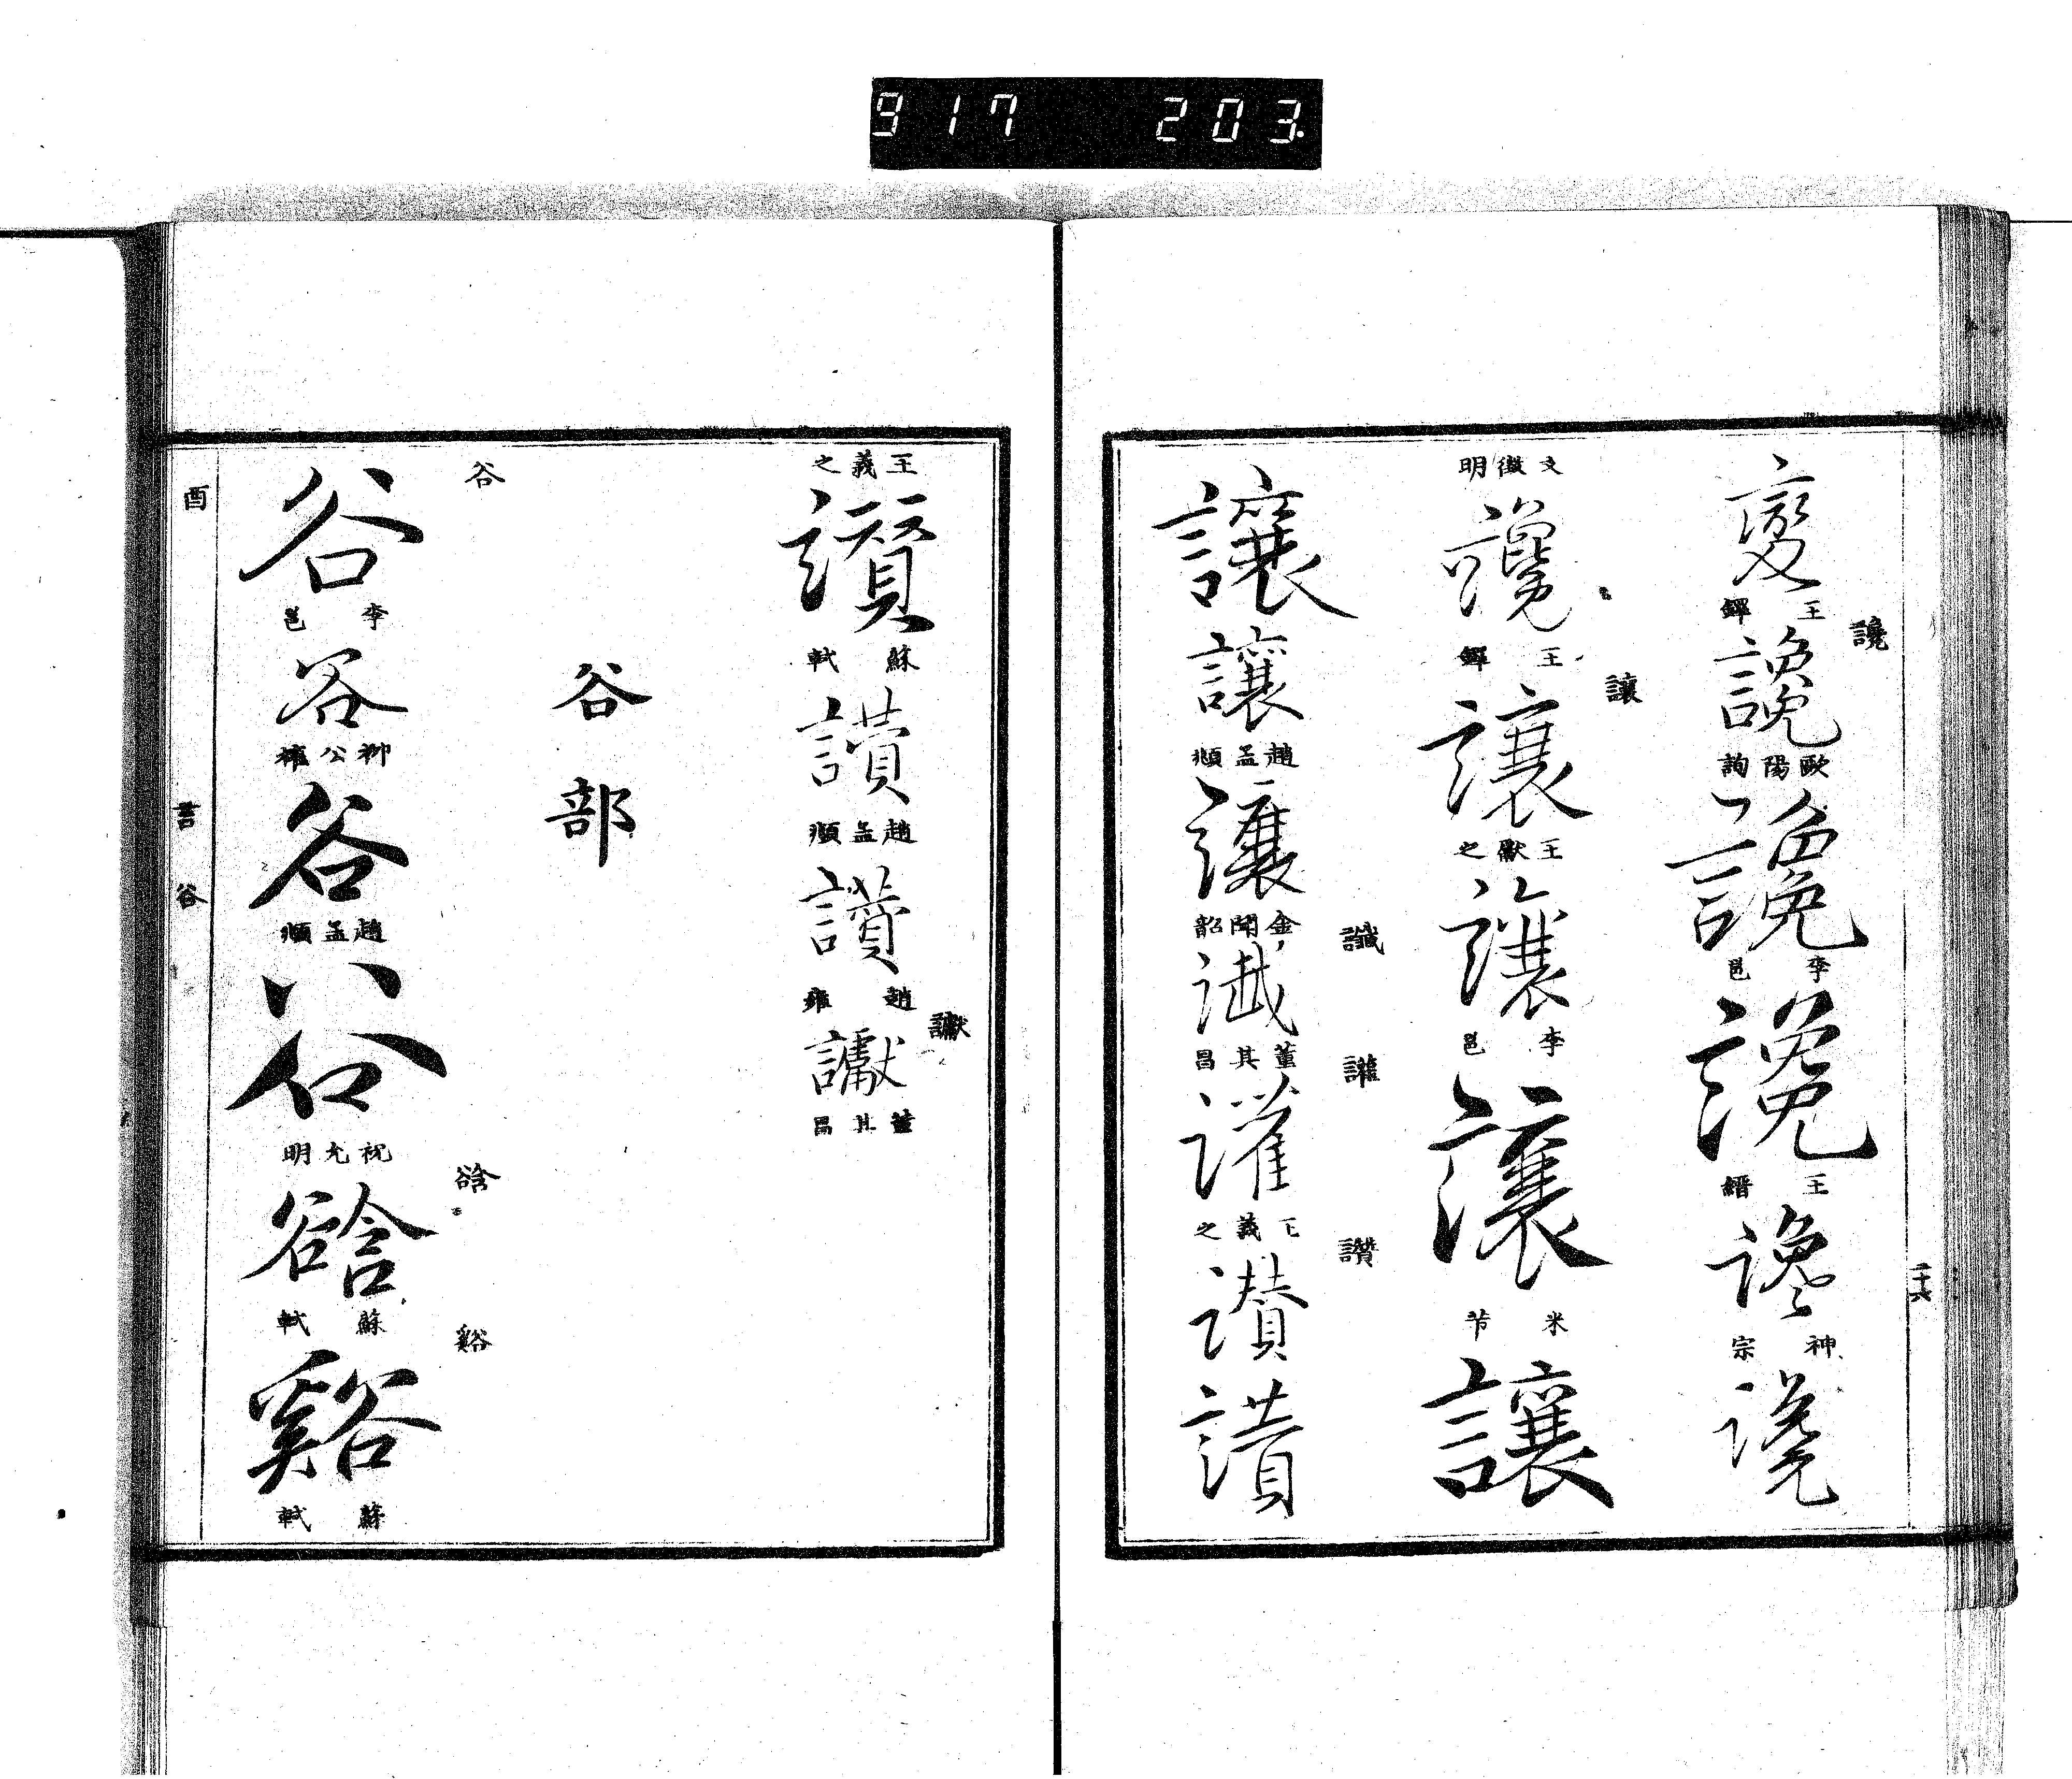 917 203
二十六
讒
變
王鐸
讒
歐陽詢
讒
李邕
讒
王縉
讒
神宗
讒
文徵明
讒
王鐸
讓
讓
王獻之
讓
李邕
讓
米芾
讓
讓
讓
趙孟頫
讓
金聞韶
讖
讖
董其昌
讙
讙
王羲之
讚
讚
讚
王羲之
讚
蘇軾
讚
趙孟頫
讚
趙雍
讞
讞
董其昌
谷部
谷
谷
李邕
谷
柳公權
谷
趙孟頫
谷
祝允明
谽
谽
蘇軾
谿
谿
蘇軾
酉
言
谷